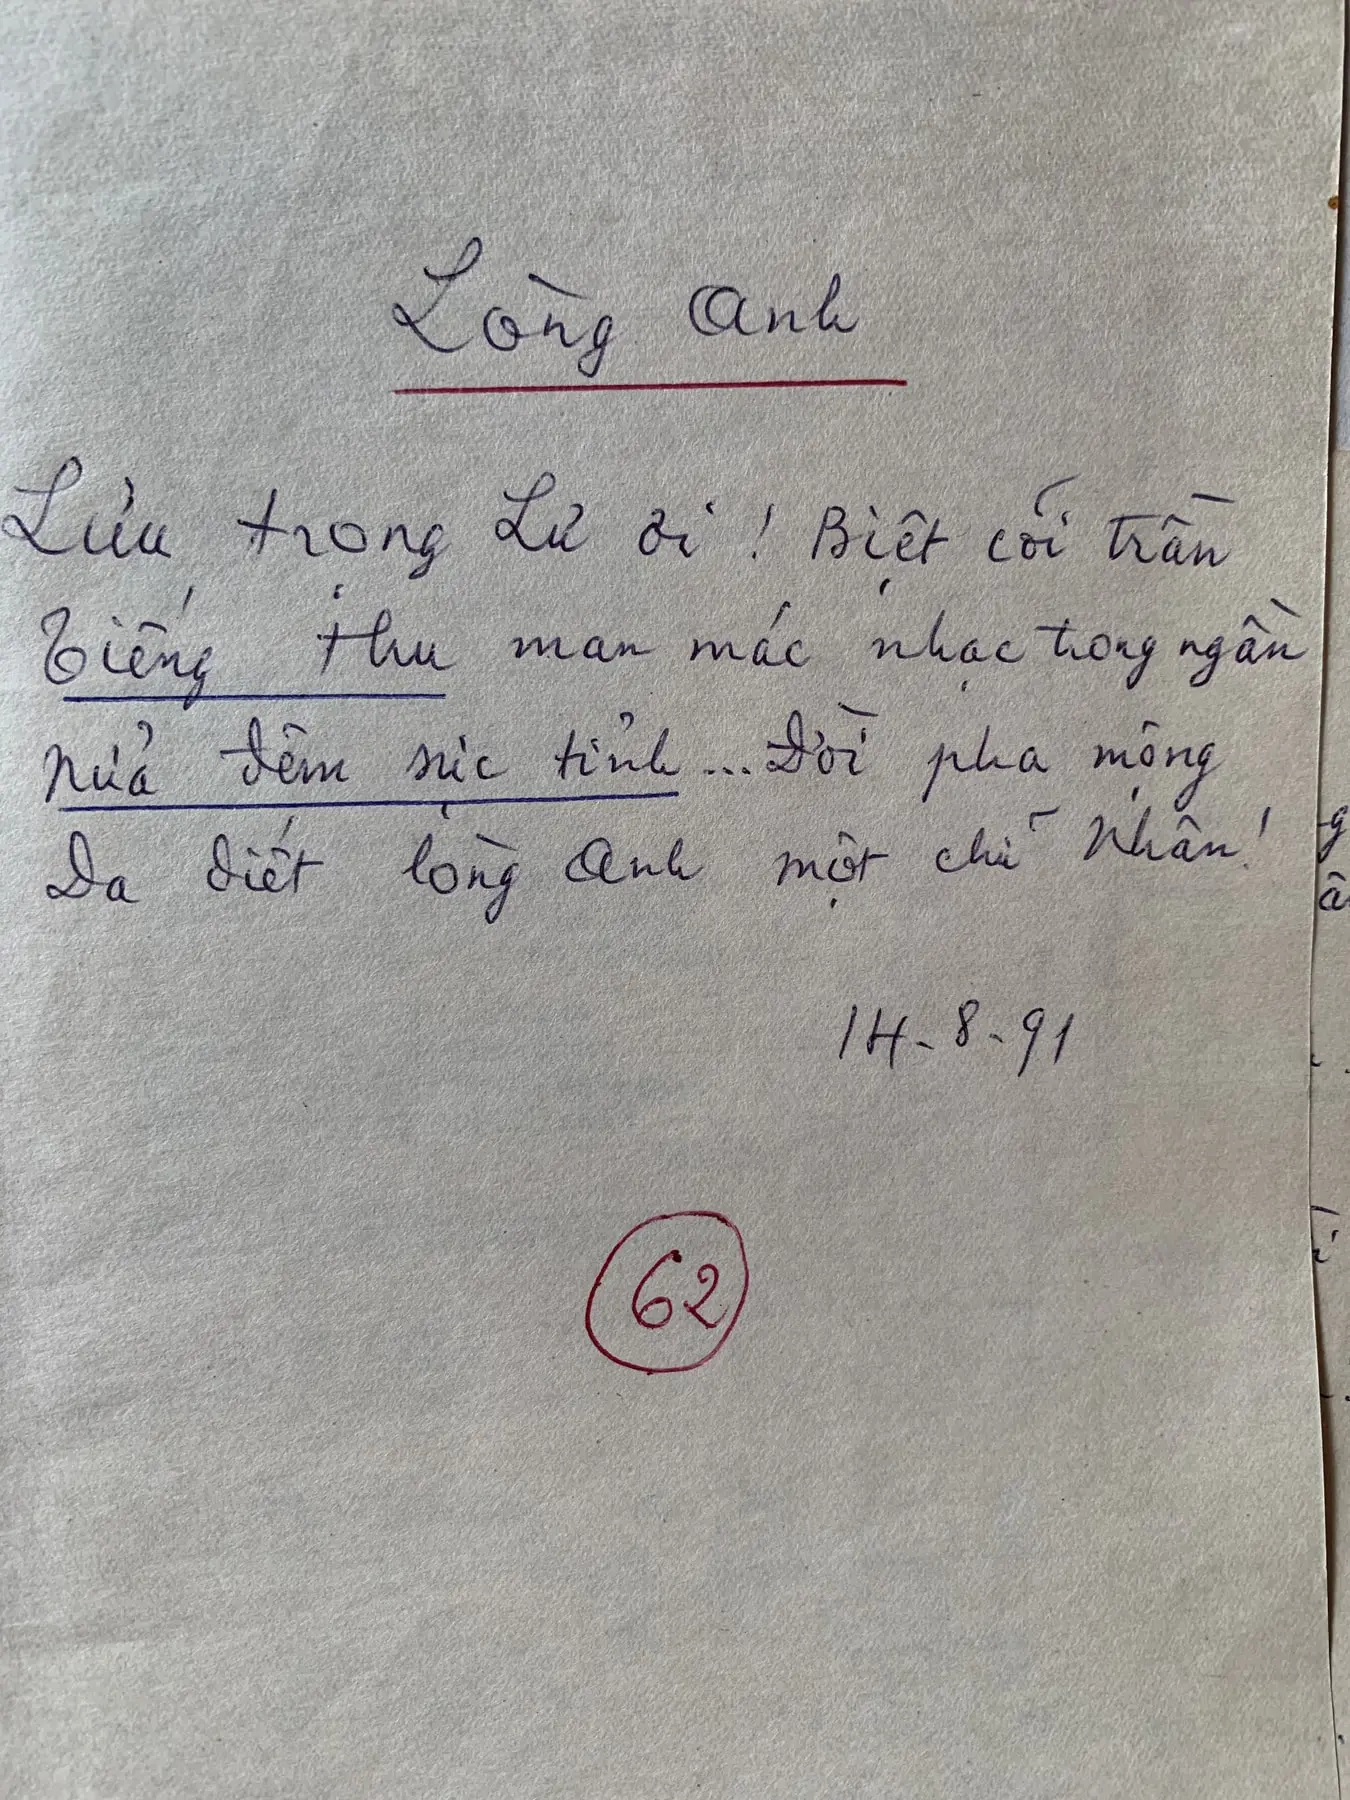 Lòng Anh
Lưu trọng Lư ơi! Biệt cõi trần
Tiếng thu man mác nhạc trong ngần
Nửa đêm sực tỉnh... Đời pha mộng
Da diết lòng Anh một chữ Nhân!
14-8-91
62